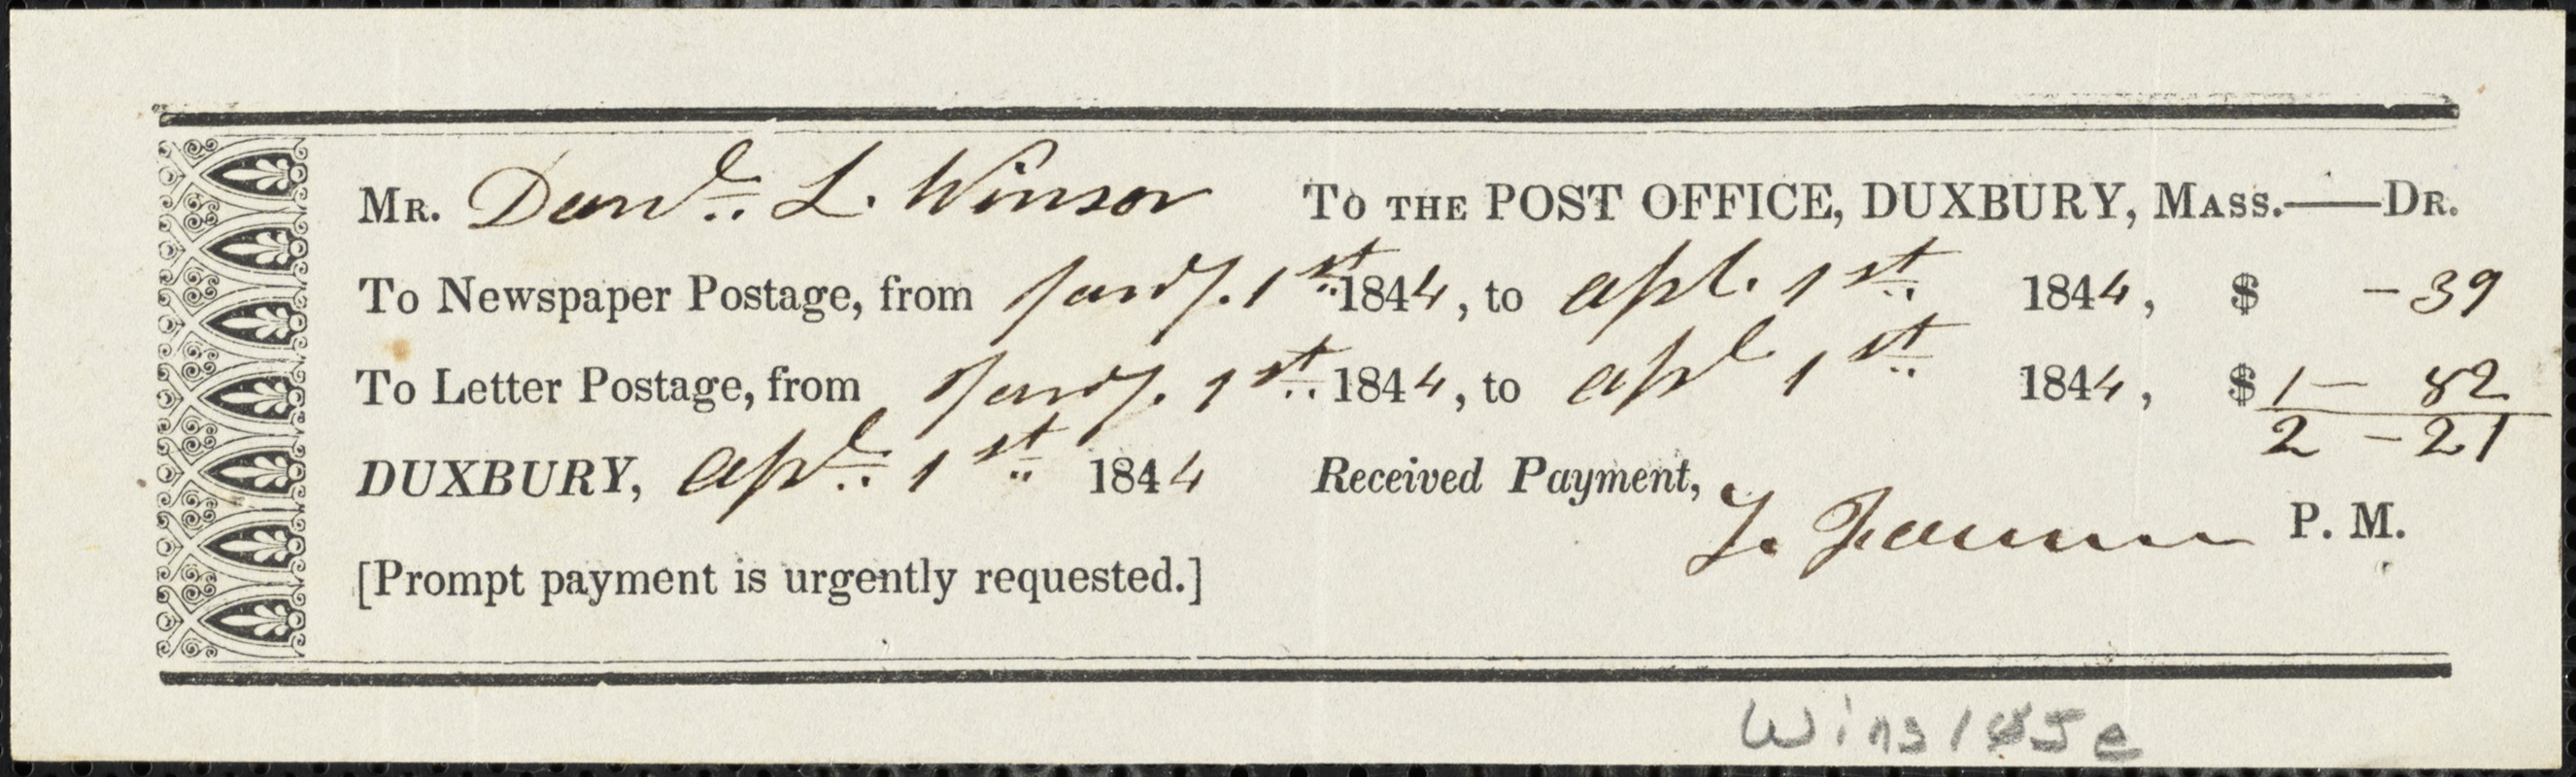 MR. Danl. L. Winsor To THE POST OFFICE, DUXBURY, MASS.—DR.
To Newspaper Postage, from Jany. 1st 1844, to apl. 1st 1844, $ - 39
To Letter Postage, from Jany. 1st 1844, to apl 1st 1844, $ 1 - 82
2 - 21
DUXBURY, apl. 1st 1844 Received Payment,
J. P. M.
[Prompt payment is urgently requested.]